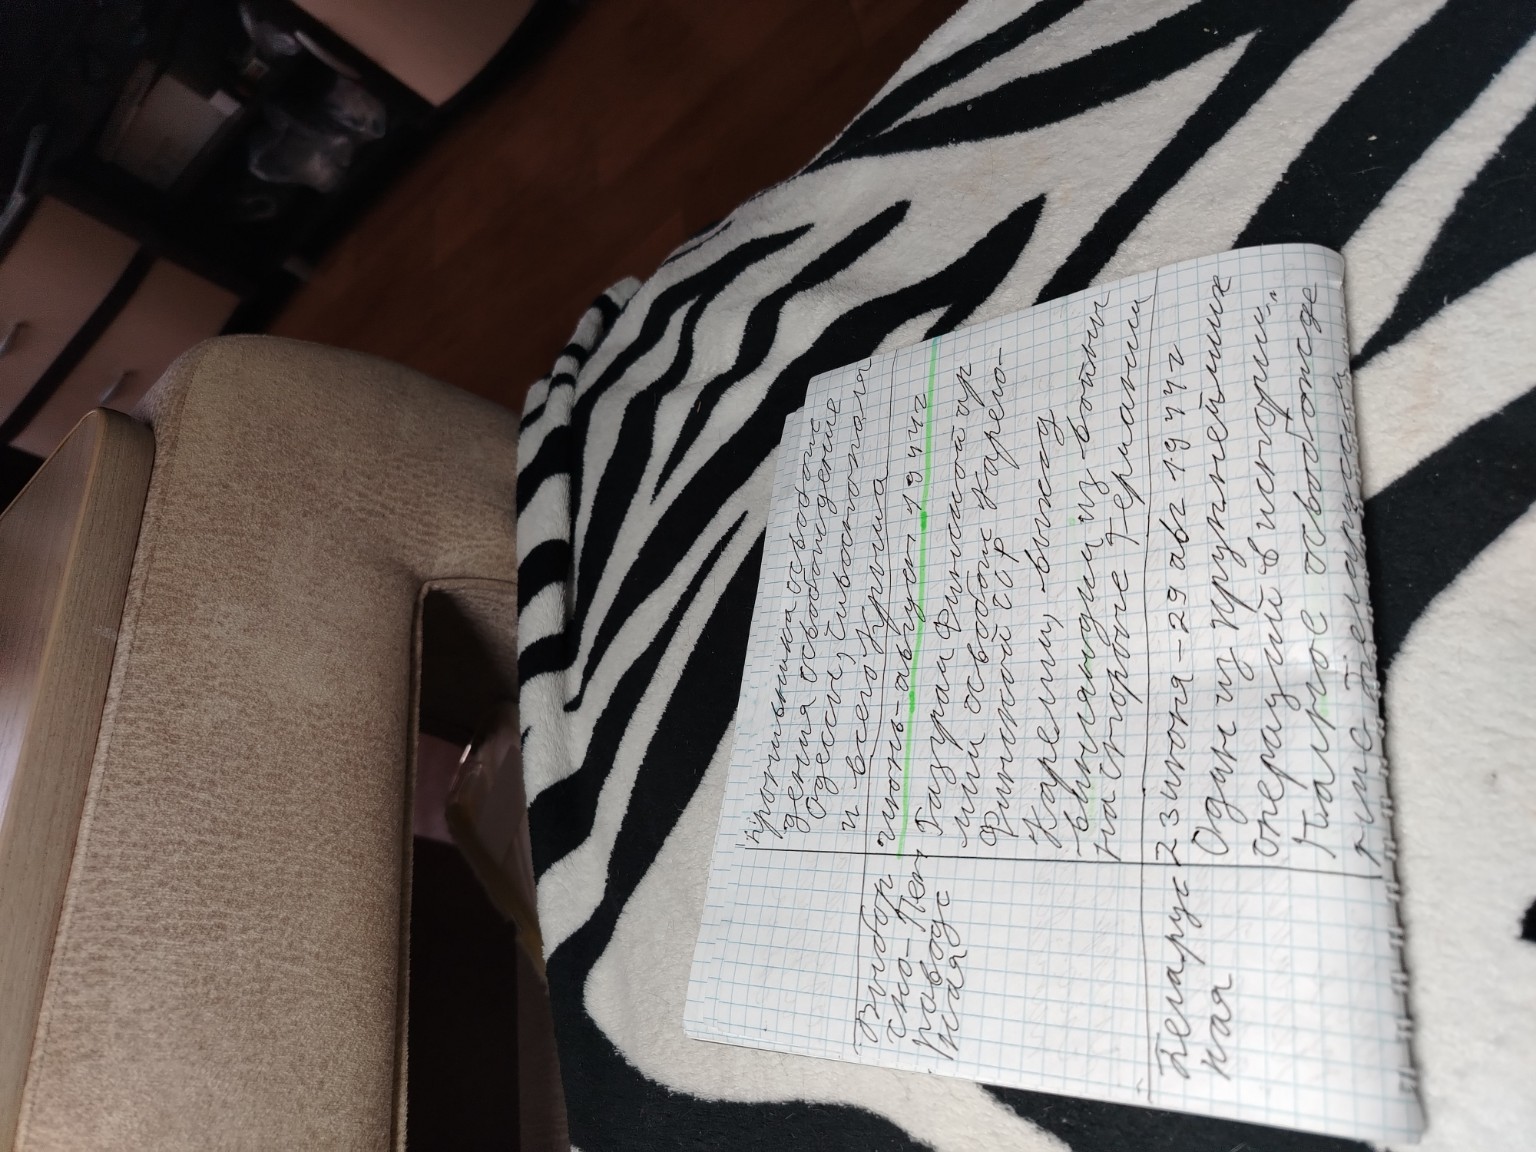 противника освобож
дения освобождение
Одессы, Сивастополя
и всего Крыма
Выборг
ско-Пет
раводс
кая
июнь-август 1944г
Разгром Финской ар
мии освобож Карело-
Финской ССР
Карелии, выход
Финляндии из войны
на стороне Германии
Беларус
кая
23 июня-29 авг 1944г
Один из крупнейших
операций в истории,
Полное освобожде
ние Белоруссии